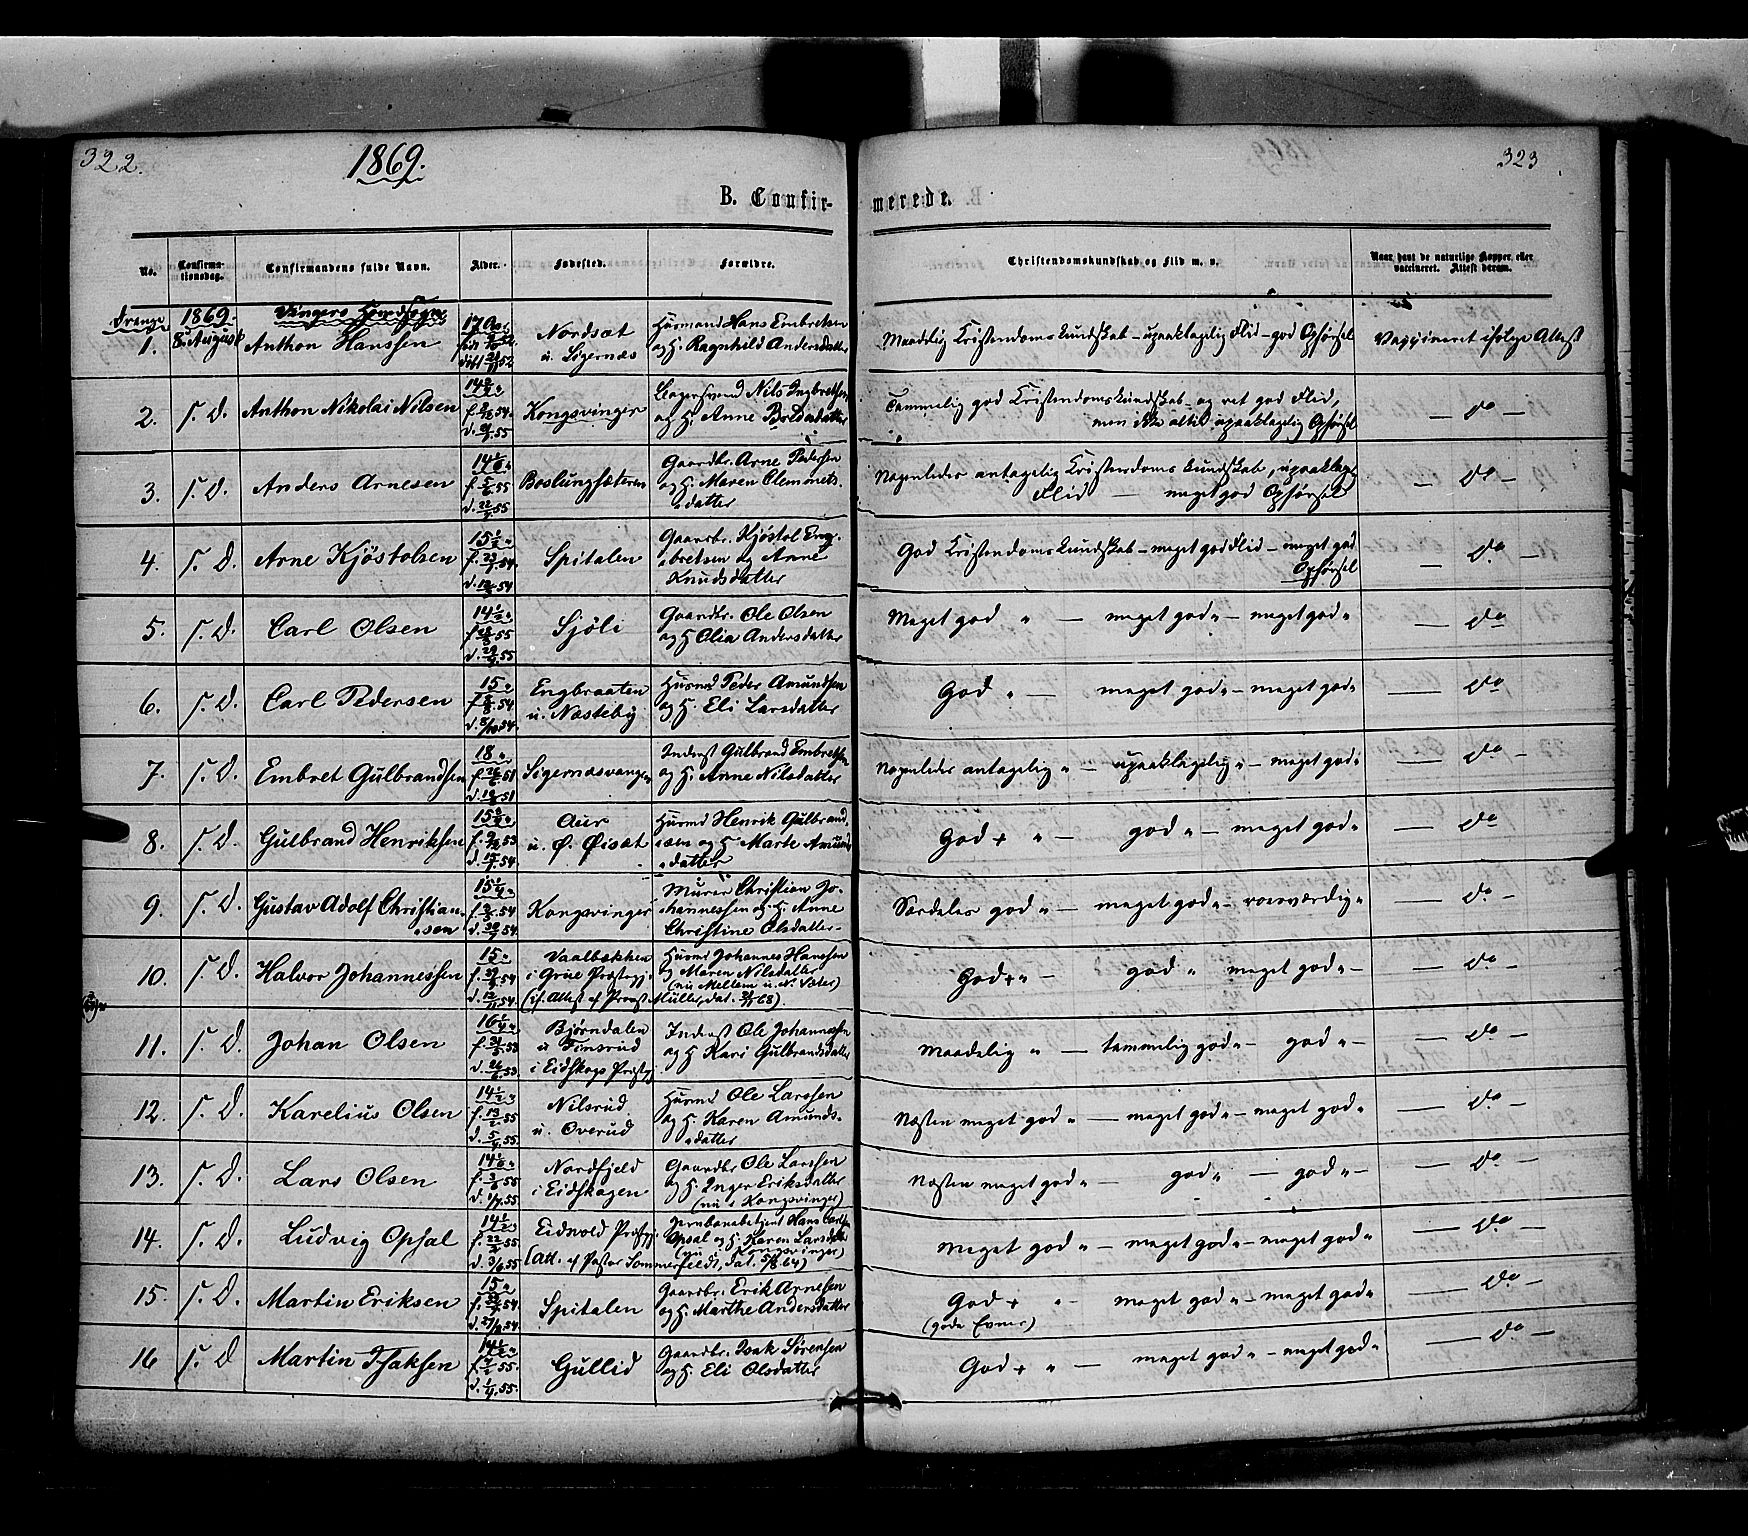 322.
1869.
323
B. Confirmerede.
No.
Confirmationsdag.
Confirmandens fulde Navn.
Alder.
Fødested.
Forældre.
Christendomskundskab og Flid m. v.
Naar havt de naturlige Kopper eller vaccineret. Attest derom.
Drenge 1869. Vingers Hovedsogn
1. 8. August Anthon Hanssen 17 Nordsæt u. Sigernæs Husmand Hans Embretsen og H. Ragnhild Andersdatter Maadelig Kristendomskundskab - upaaklagelig Flid - god Opførsel Vaxxineret ifølge Attest
2. S. D. Anthon Nikolai Nilsen Kongsvinger Nils Ingbretsen og H. Anne Temmelig god Kristendomskundskab og ret god Flid, men ikke altid upaaklagelig Opførsel — do —
3. S. D. Anders Arnesen Boslungsæteren Gaardbr. Arne Pedersen og H. Maren Clemmetsdatter Nogenledes antagelig Kristendomskundskab, upaaklagel. Flid — meget god Opførsel — do —
4. S. D. Arne Kjöstolsen Spitalen Gaardbr. Kjöstol Engbretsen og Anne Knudsdatter God Kristendomskundskab - meget god Flid - meget god Opførsel — do —
5. S. D. Carl Olsen Sjöli Gaardbr. Ole Olsen og H. Olia Andersdatter Meget god " — meget god " — meget god " — do
6. S. D. Carl Pedersen 15 Engbraaten u. Næsteby Husmd Peder Amundsen og H. Eli Larsdatter God " — meget god " — meget god " — do
7. S. D. Embret Gulbrandsen 18 Sigernæsvangen Inderst Gulbrand Embretsen og H. Anne Nilsdatter Nogenledes antagelig " — upaaklagelig " — meget god " — do —
8. S. D. Gulbrand Henriksen Aur u. Ø. Øisæt Husmd Henrik Gulbrandsen og H. Marte Amundsdatter God + " — god " — meget god " — do
9. S. D. Gustav Adolf Christiansen Kongsvinger Murer Christian Johannessen og H. Anne Christine Olsdatter Særdeles god " — meget god " — roesværdig " — do —
10. S. D. Halvor Johannessen 15 Vaalbækken i Grue Præstegj. (if. Attest af Provst Müller, dat. 68). Husmd Johannes Hanssen og Maren Nilsdatter (nu Mellem u. N. Sæter) God + " — god " meget god " — do —
11. S. D. Johan Olsen Bjørndalen u Tinsrud i Eidskogs Præstgj Inderst Ole Johannessen og H. Kari Gulbrandsdatter Maadelig " — temmelig god " — god " — do —
12. S. D. Karelius Olsen Nilsrud u. Overud Husmd Ole Larssen og H. Karen Amundsdatter Næsten meget god " — meget god " — meget god " — do —
13. S. D. Lars Olsen Nordfjeld i Eidskogen Gaardbr Ole Larssen og H. Inger Eriksdatter (nu i Kongsvinger) Næsten meget god " — god " — god " — do —
14. S. D. Ludvig Opsal Eidsvold Præstgj (Att. af Pastor Sommerfeldt, dat. 5/8 64) Jernbanebetjent Hans Opsal og H. Karen Larsdatter (nu i Kongsvinger) Meget god " — meget god " — meget god " — do —
15. S. D. Martin Eriksen 15 Spitalen Gaardbr. Erik Arnesen og H. Marthe Andersdatter God + " — meget god " — meget god " — do —
(gode Evner)
16 S. D Martin Isaksen Gullid Gaardbr. Isak Sørensen og H. Eli Olsdatter God + " — meget god " — meget god " — do —